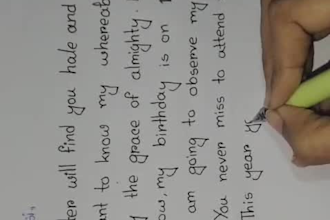 si,
her will find you hale and
ant to know my whereab
y the grace of almighty.
ow, my birthday is on 1
am going to observe my
You never miss to attend
This year y